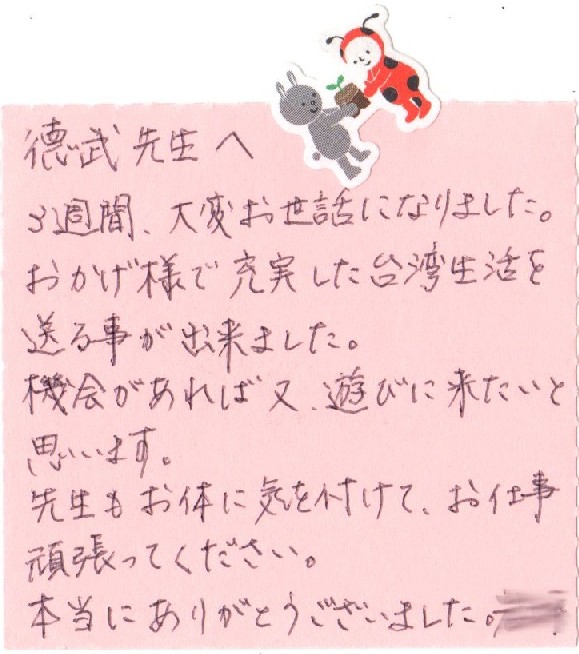 徳武先生へ
3週間、大変お世話になりました。
おかげ様で充実した台湾生活を
送る事が出来ました。
機会があれば又、遊びに来たいと
思います。
先生もお体に気を付けて、お仕事
頑張ってください。
本当にありがとうございました。